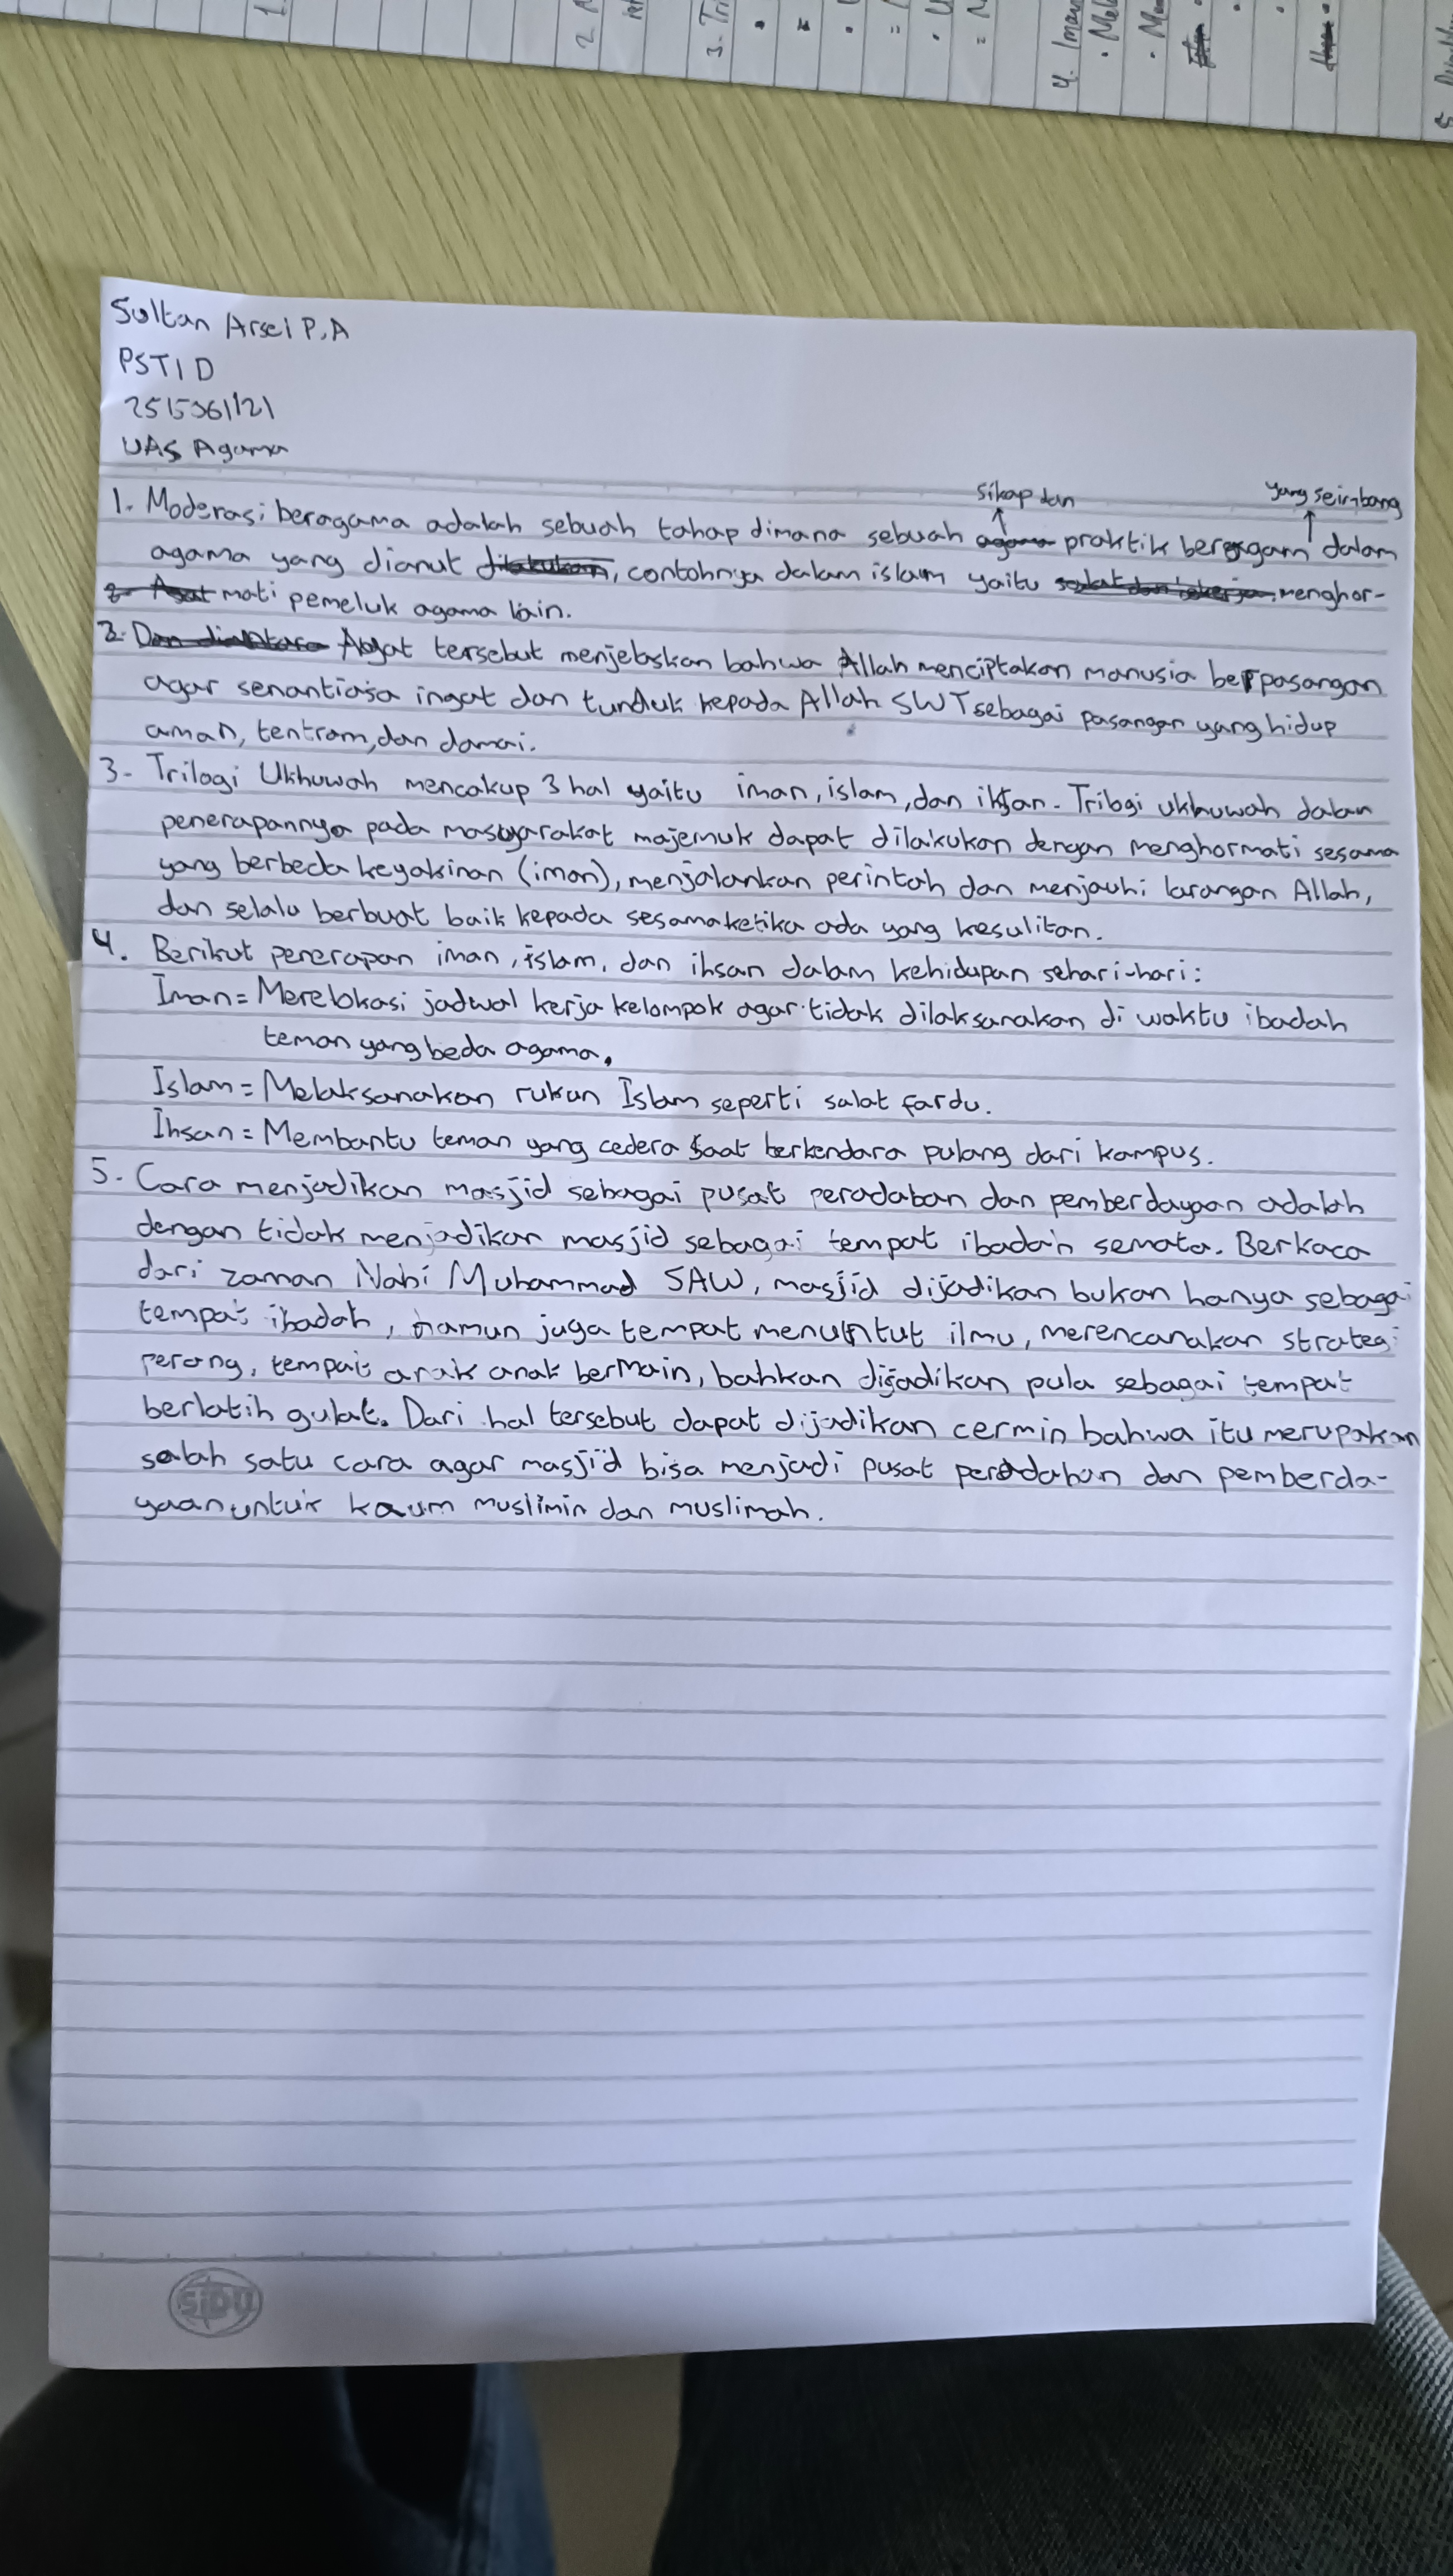 Sultan Arsel P.A
PSTI D
2515061121
UAS Agama
sikap dan yang seimbang
1. Moderasi beragama adalah sebuah tahap dimana sebuah praktik beragam dalam
agama yang dianut, contohnya dalam islam yaitu menghor-
mati pemeluk agama lain.
2. Ayat tersebut menjelaskan bahwa Allah menciptakan manusia berpasangan
agar senantiasa ingat dan tunduk kepada Allah SWT sebagai pasangan yang hidup
aman, tentram, dan damai.
3. Trilogi Ukhuwah mencakup 3 hal yaitu iman, islam, dan ihsan. Trilogi ukhuwah dalam
penerapannya pada masyarakat majemuk dapat dilakukan dengan menghormati sesama
yang berbeda keyakinan (iman), menjalankan perintah dan menjauhi larangan Allah,
dan selalu berbuat baik kepada sesama ketika ada yang kesulitan.
4. Berikut penerapan iman, islam, dan ihsan dalam kehidupan sehari-hari:
Iman = Merelokasi jadwal kerja kelompok agar tidak dilaksanakan di waktu ibadah
teman yang beda agama.
Islam = Melaksanakan rukun Islam seperti salat fardu.
Ihsan = Membantu teman yang cedera saat berkendara pulang dari kampus.
5. Cara menjadikan masjid sebagai pusat peradaban dan pemberdayaan adalah
dengan tidak menjadikan masjid sebagai tempat ibadah semata. Berkaca
dari zaman Nabi Muhammad SAW, masjid dijadikan bukan hanya sebagai
tempat ibadah, namun juga tempat menuntut ilmu, merencanakan strategi
perang, tempat anak anak bermain, bahkan dijadikan pula sebagai tempat
berlatih gulat. Dari hal tersebut dapat dijadikan cermin bahwa itu merupakan
salah satu cara agar masjid bisa menjadi pusat peradaban dan pemberda-
yaan untuk kaum muslimin dan muslimah.
SiDU